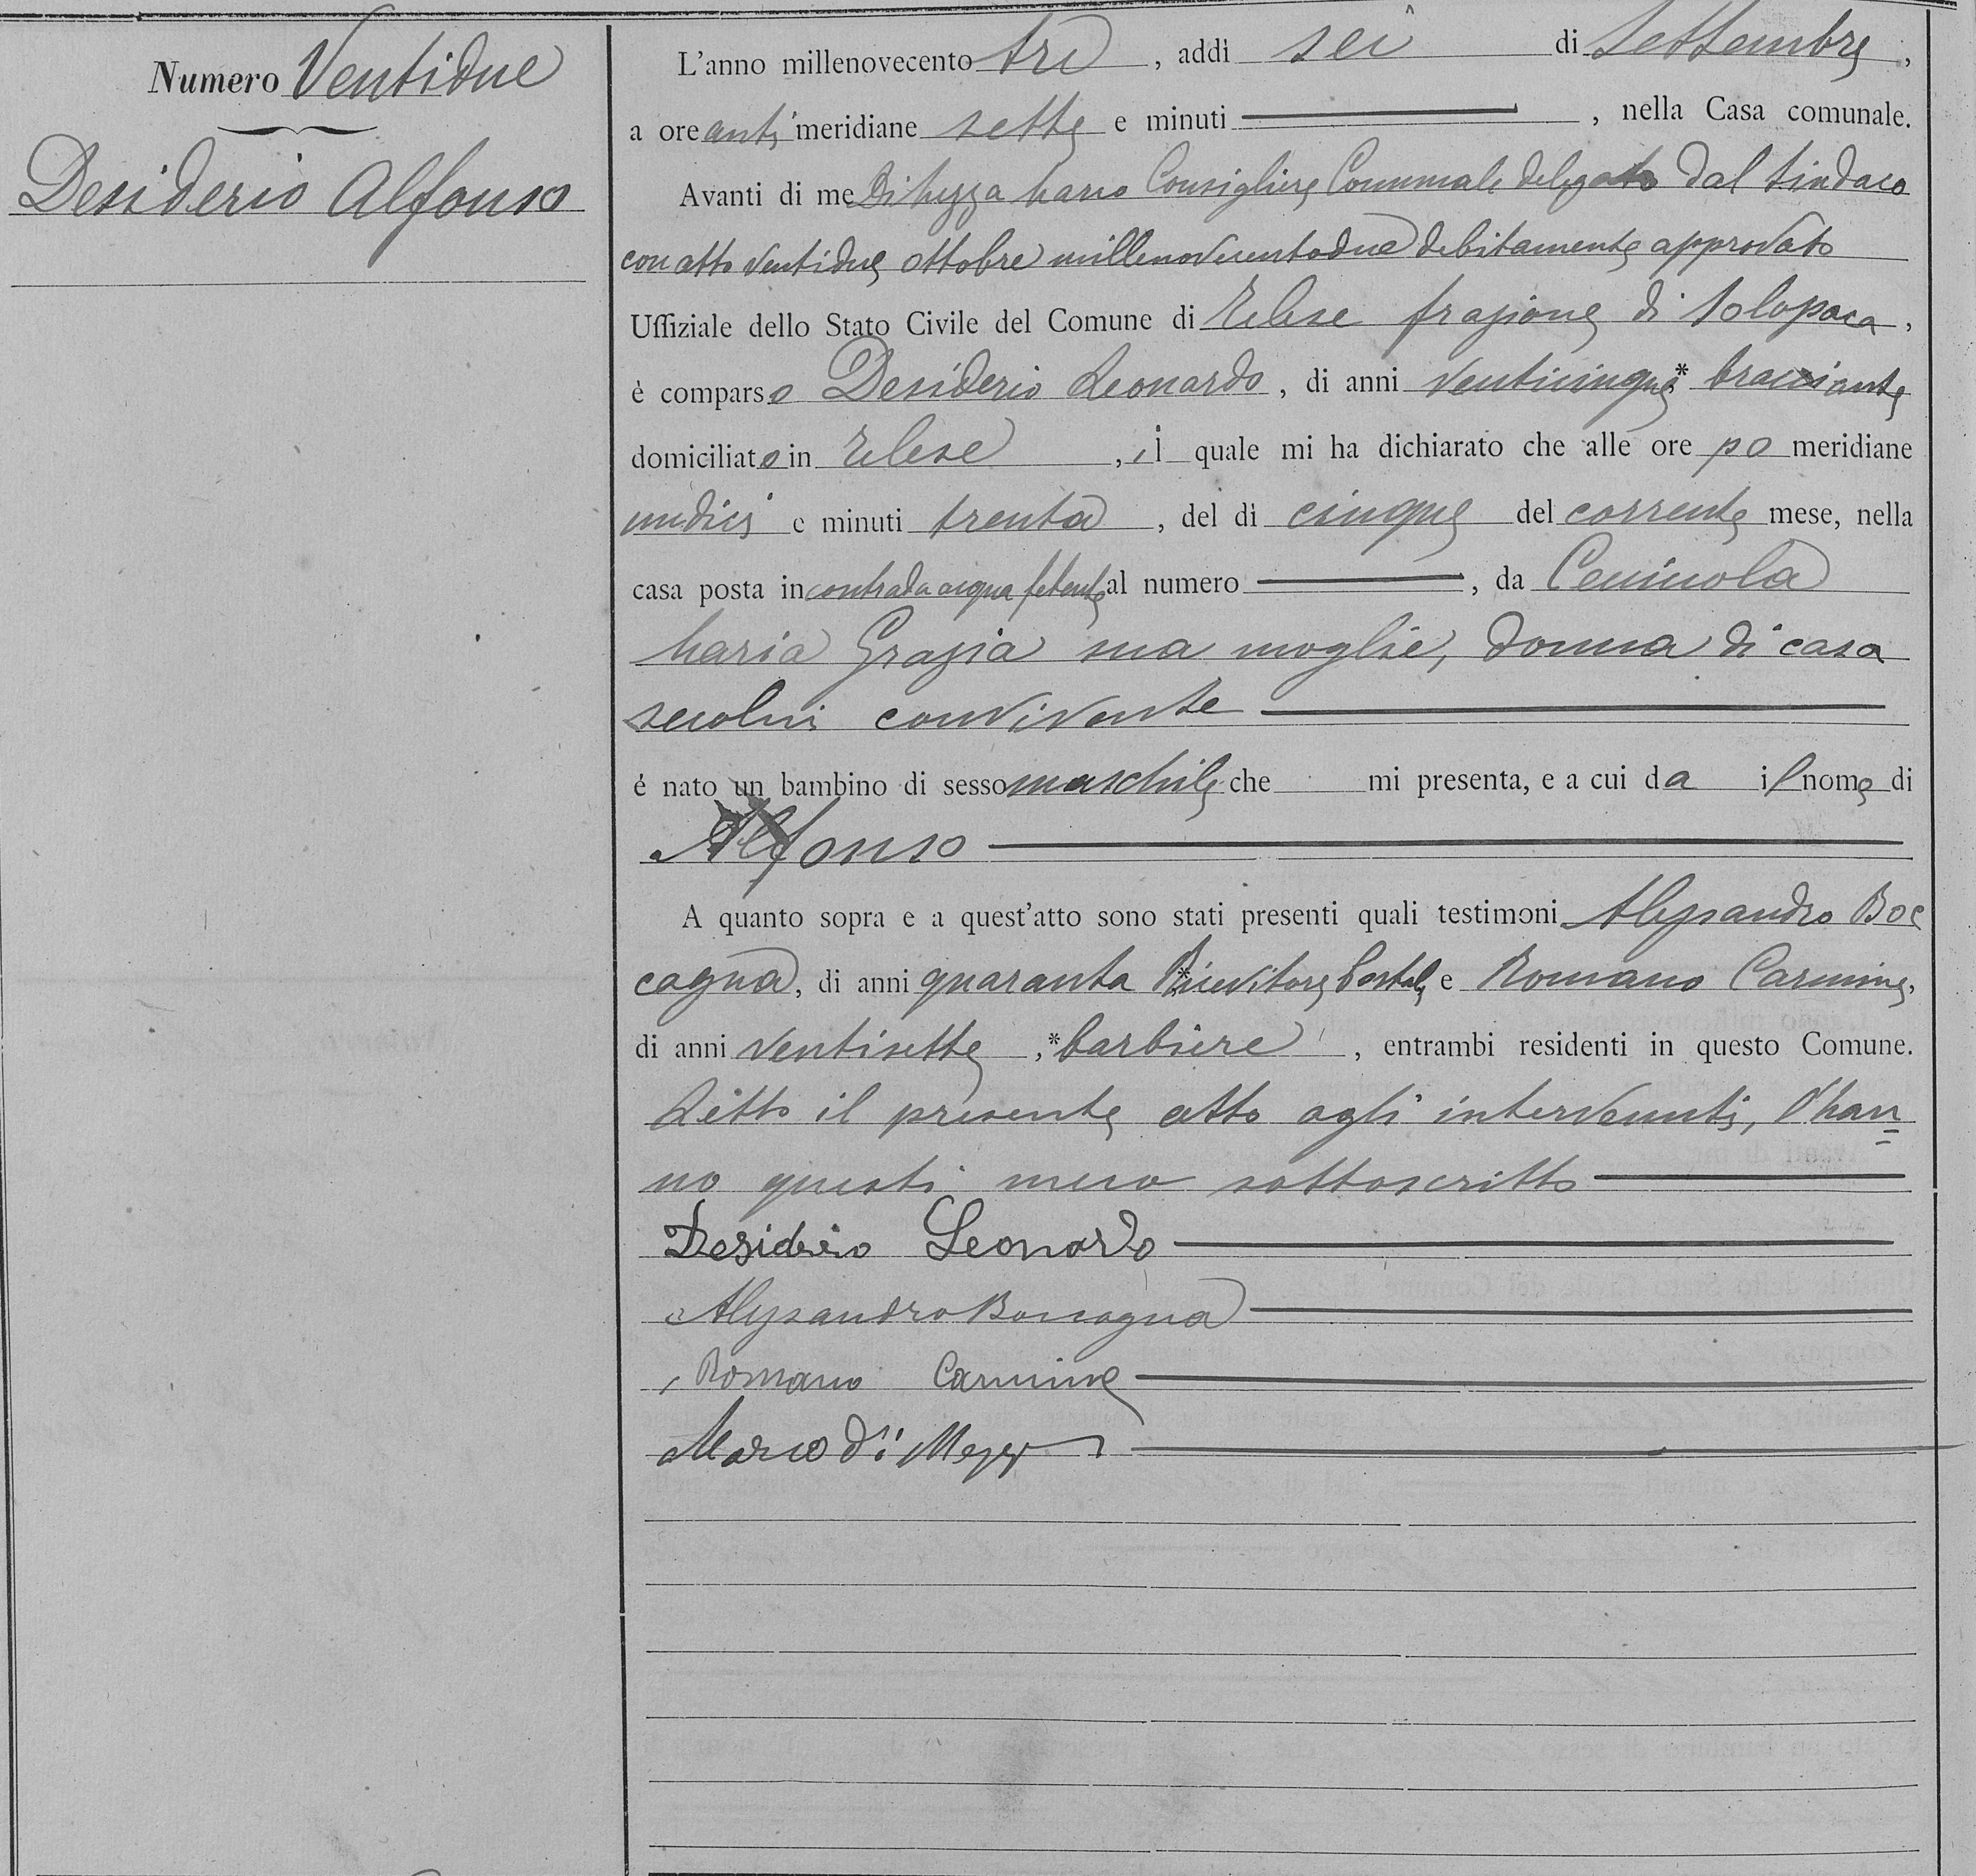 Numero Ventidue
Desiderio Alfonso
L'anno millenovecento tre, addì sei di Settembre,
a ore anti meridiane sette e minuti —, nella Casa comunale.
Avanti di me Di Mezza Marco Consigliere Comunale delegato dal Sindaco
con atto ventidue ottobre millenovecentodue debitamente approvato
Uffiziale dello Stato Civile del Comune di Telese frazione di Solopaca,
è comparso Desiderio Leonardo, di anni venticinque, * bracciante
domiciliato in Telese, il quale mi ha dichiarato che alle ore po meridiane
undici e minuti trenta, del dì cinque del corrente mese, nella
casa posta in contrada acqua fetente al numero —, da
Maria Grazia sua moglie, donna di casa
secolui convivente —
è nato un bambino di sesso maschile che mi presenta, e a cui da il nome di
Alfonso —
A quanto sopra e a quest'atto sono stati presenti quali testimoni Alessandro Boc
cagna, di anni quaranta * Ricevitore Postale e Romano Carmine,
di anni ventisette, * barbiere, entrambi residenti in questo Comune.
Letto il presente atto agli intervenuti, l'han=
no questi meco sottoscritto —
Desiderio Leonardo —
Alessandro Boccagna —
Romano Carmine —
Marco di Mezza —